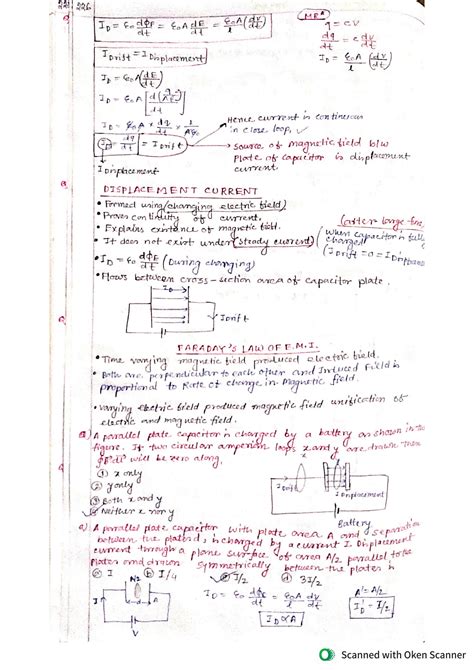 226
I_D = ε₀ dφ_E/dt = ε₀A dE/dt = ε₀A/l (dV/dt)
MR*
q = CV
dq/dt = C dV/dt
I_D = ε₀A/l (dV/dt)
I Drift = I Displacement
I_D = ε₀A (dE/dt)
I_D = ε₀A
I_D = ε₀A × dq/dt × 1/Aε₀
I_D = dq/dt = I Drift
I Displacement
Hence current is continuous
in close loop,
source of magnetic field b/w
plate of capacitor is displacement
current.
DISPLACEMENT CURRENT
• Formed using (changing electric field)
• Proves continuity of current.
• Explains existance of magnetic field.
• It does not exist under (steady current)
(after large time
When capacitor is fully
charged
(I Drift = 0 = I Displacement
• I_D = ε₀ dφ_E/dt (During changing)
• Flows between cross-section area of capacitor plate.
I_D
I Drift
FARADAY'S LAW OF E.M.I.
• Time varying magnetic field produced electric field.
• Both are perpendicular to each other and Induced Field is
proportional to Rate of change in Magnetic field.
• Varying electric field produced magnetic field unification of
electric and magnetic field.
Q) A parallel plate capacitor is charged by a battery as shown in the
figure. If two circular amperian loops x and y are drawn then
will be zero along.
① x only
② y only
③ Both x and y
Neither x nor y
x
I Drift
I Displacement
Battery
Q) A parallel plate capacitor with plate area A and separation
between the plates d, is charged by a current I. Displacement
current through a plane surface of area A/2 parallel to the
plates and drawn Symmetrically between the plates is
ⓐ I ⓑ I/4 I/2 ⓓ 3I/2
A/2
I
A
I_D = ε₀ dφ_E/dt = ε₀A/l dV/dt
I_D ∝ A
A' = A/2
I_D' = I/2
Scanned with Oken Scanner